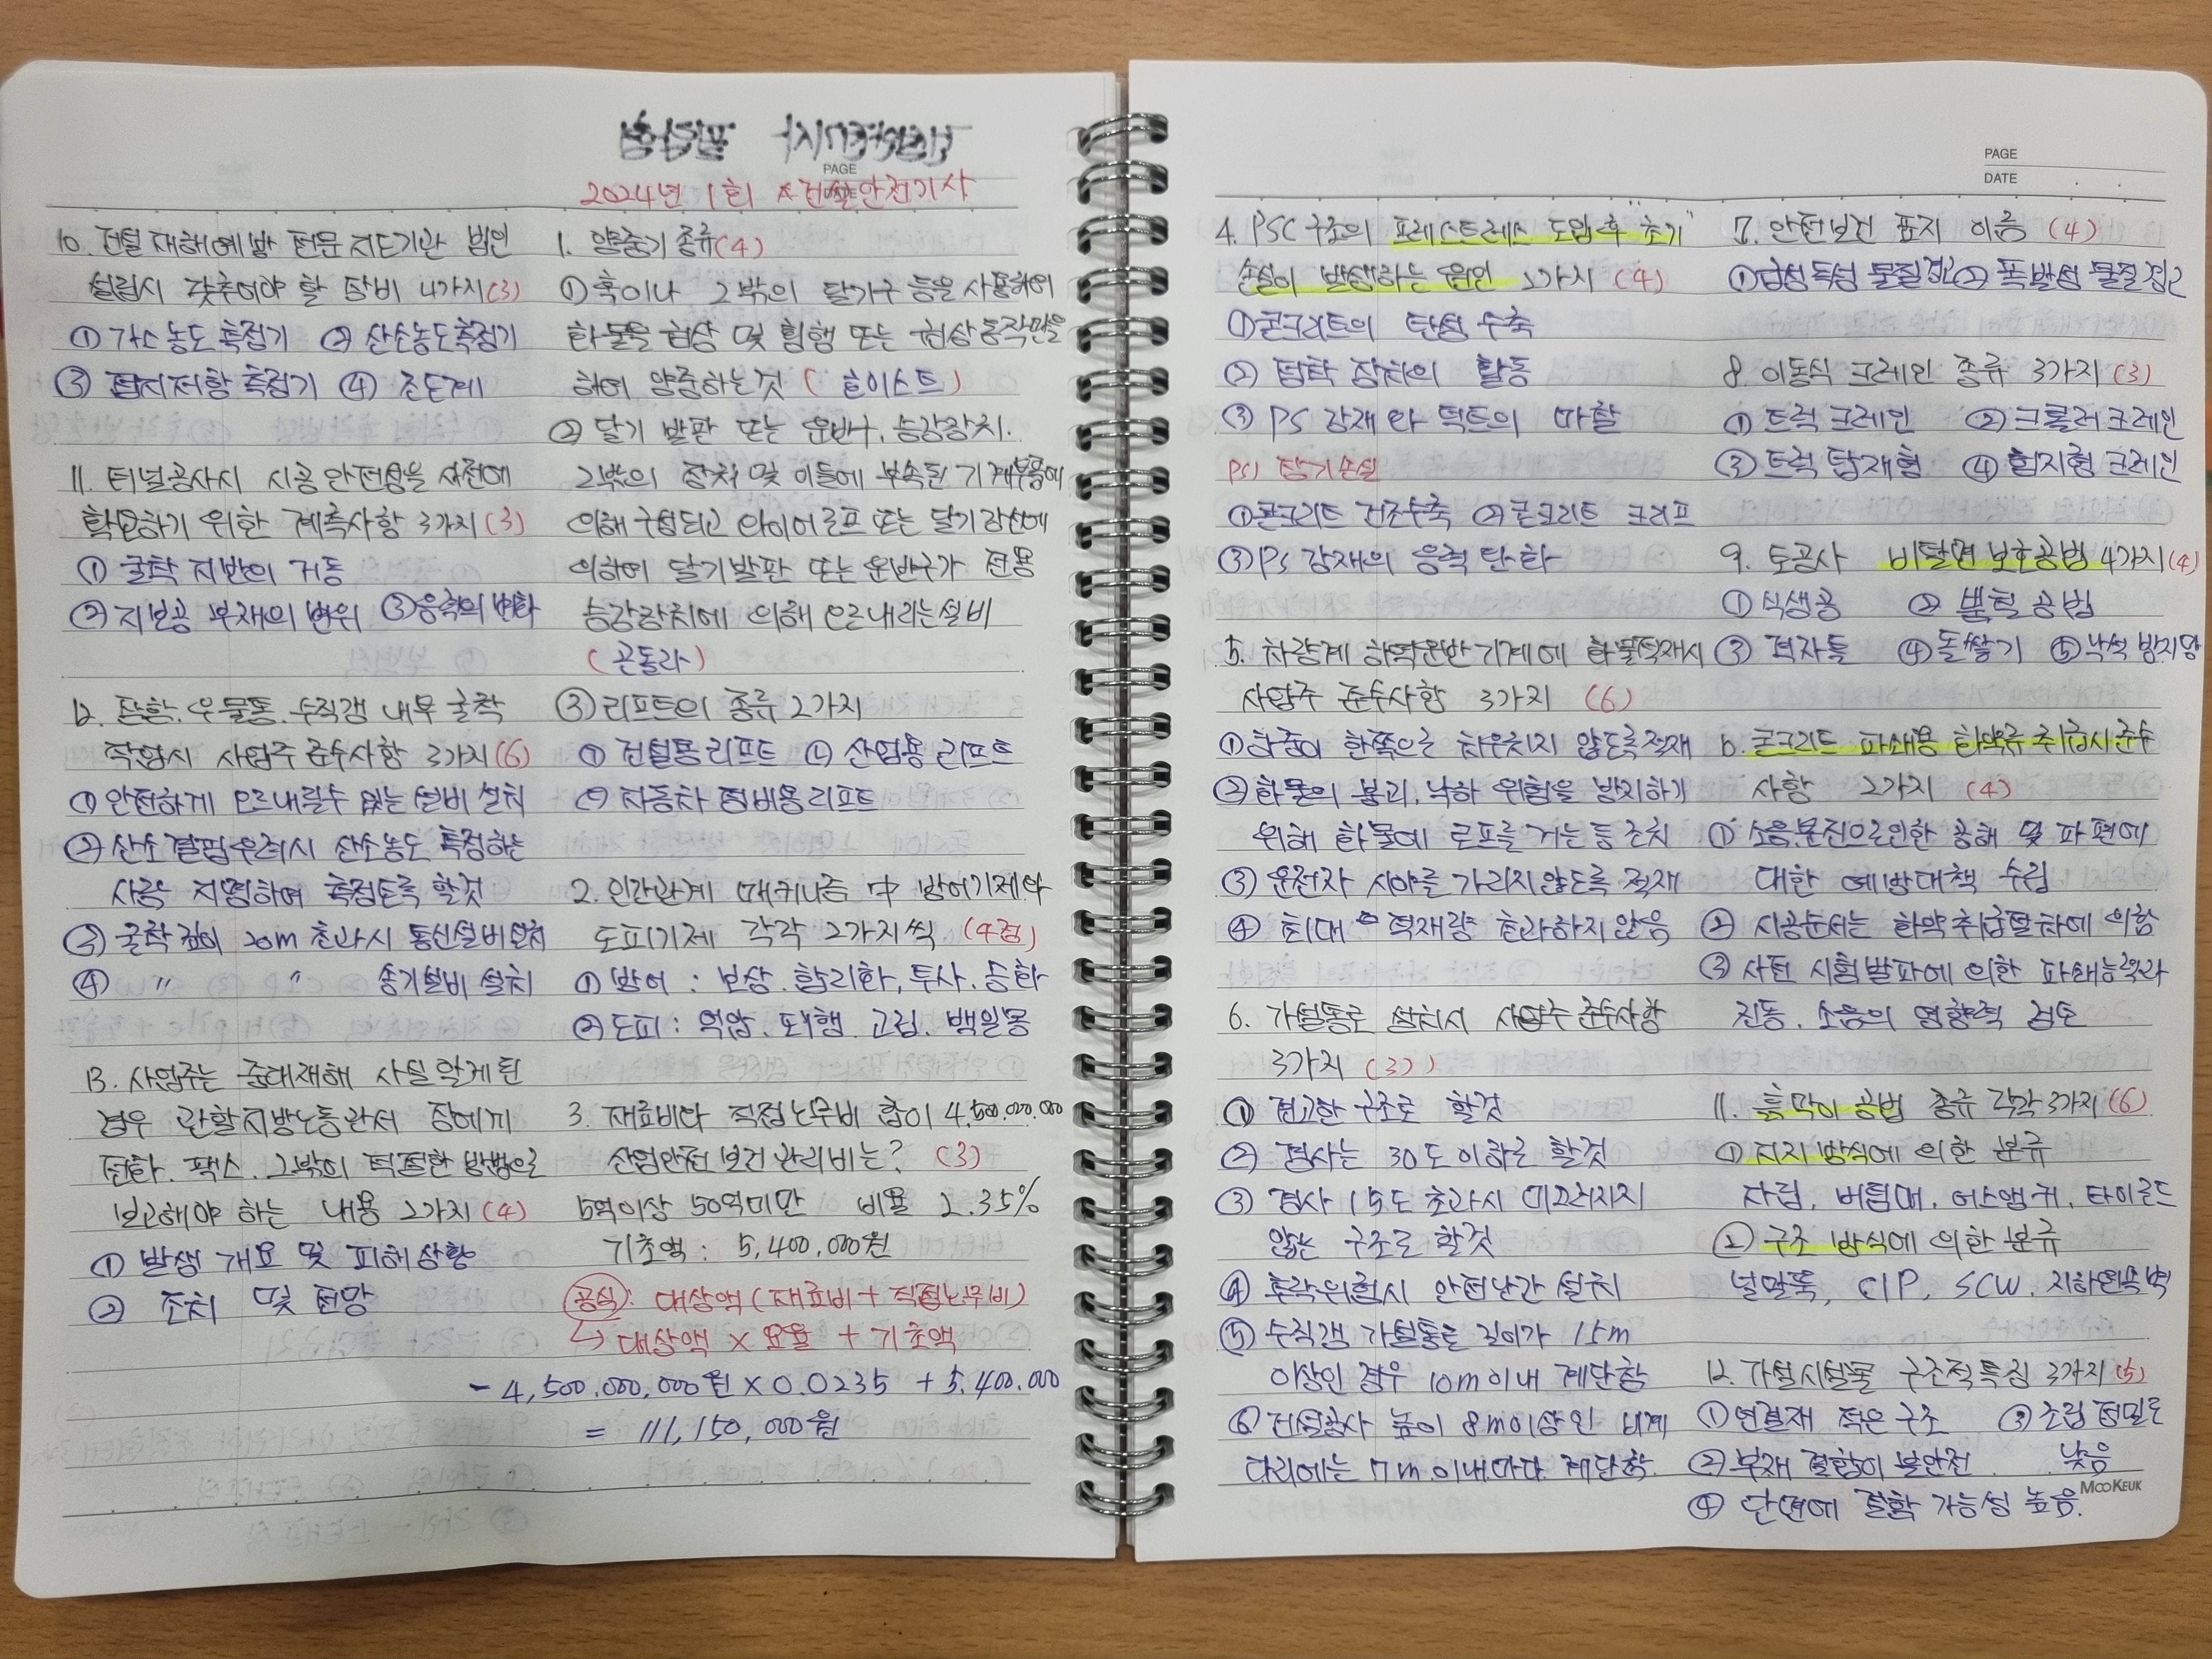 PAGE
2024년 1회 *건설안전기사
10. 건설 재해예방 전문 지도기관 법인
설립시 갖추어야 할 장비 4가지(3)
① 가스농도 측정기 ② 산소농도측정기
③ 접지저항 측정기 ④ 조도계
11. 터널공사시 시공 안전성을 사전에
확인하기 위한 계측사항 3가지(3)
① 굴착 지반의 거동
② 지보공 부재의 변위 ③ 응력의 변화
12. 잠함. 우물통. 수직갱 내부 굴착
작업시 사업주 준수사항 3가지(6)
① 안전하게 오르내릴수 있는 설비 설치
② 산소결핍우려시 산소농도 측정하는
사람 지명하여 측정토록 할것
③ 굴착 깊이 20m 초과시 통신설비 설치
④ 〃 〃 송기설비 설치
13. 사업주는 중대재해 사실 알게된
경우 관할지방노동관서 장에게
전화. 팩스. 그밖의 적절한 방법으로
보고해야 하는 내용 2가지(4)
① 발생 개요 및 피해상황
② 조치 및 전망
1. 양중기 종류(4)
① 훅이나 그밖의 달기구 등을 사용하여
화물을 권상 및 횡행 또는 권상동작만을
하여 양중하는것 (호이스트)
② 달기 발판 또는 운반구. 승강장치.
그밖의 장치 및 이들에 부속된 기계부품에
의해 구성되고 와이어로프 또는 달기강선에
의하여 달기발판 또는 운반구가 전용
승강장치에 의해 오르내리는설비
(곤돌라)
③ 리프트의 종류 2가지
① 건설용리프트 ② 산업용 리프트
③ 자동차 정비용리프트
2. 인간관계 매커니즘 中 방어기제와
도피기제 각각 2가지씩 (4점)
① 방어 : 보상. 합리화, 투사. 승화
② 도피 : 억압. 퇴행. 고립. 백일몽
3. 재료비와 직접노무비 합이 4.500.000.000
산업안전 보건 관리비는? (3)
5억이상 50억미만 비율 2.35%
기초액 : 5,400,000원
공식 : 대상액(재료비 + 직접노무비)
↳ 대상액 × 요율 + 기초액
- 4,500.000,000원 × 0.0235 + 5.400.000
= 111,150,000원
PAGE
DATE
4. PSC 구조의 프레스트레스 도입후 초기"
손실이 발생하는 원인 3가지 (4)
① 콘크리트의 탄성 수축
② 정착 장치의 활동
③ PS 강재와 덕트의 마찰
PSC 장기손실
① 콘크리트 건조수축 ② 콘크리트 크리프
③ PS 강재의 응력 완화
5. 차량계 하역운반기계에 화물적재시
사업주 준수사항 3가지 (6)
① 하중이 한쪽으로 치우치지 않도록적재
② 화물의 붕괴. 낙하 위험을 방지하기
위해 화물에 로프를 거는 등 조치
③ 운전자 시야를 가리지않도록 적재
④ 최대 적재량 초과하지 않음
6. 가설통로 설치시 사업주 준수사항
3가지 (3)
① 견고한 구조로 할것
② 경사는 30도 이하로 할것
③ 경사 15도 초과시 미끄러지지
않는 구조로 할것
④ 추락위험시 안전난간 설치
⑤ 수직갱 가설통로 길이가 15m
이상인 경우 10m이내 계단참
⑥ 건설공사 높이 8m이상인 비계
다리에는 7m이내마다 계단참.
7. 안전보건 표지 이름 (4)
① 급성독성 물질경고 ② 폭발성 물질경고
8. 이동식 크레인 종류 3가지(3)
① 트럭 크레인 ② 크롤러크레인
③ 트럭 탑재형 ④ 험지형 크레인
9. 토공사 비탈면 보호공법 4가지(4)
① 식생공 ② 뿜칠 공법
③ 격자틀 ④ 돌쌓기 ⑤ 낙석 방지망
10. 콘크리트 파쇄용 화약류 취급시 준수
사항 2가지 (4)
① 소음.분진으로인한 공해 및 파편에
대한 예방대책 수립
② 시공순서는 화약취급절차에 의함
③ 사전 시험발파에 의한 파쇄능력과
진동. 소음의 영향력 검토
11. 흙막이 공법 종류 각각 3가지(6)
① 지지 방식에 의한 분류
자립. 버팀대. 어스앵커. 타이로드
② 구조 방식에 의한 분류
널말뚝, CIP, SCW. 지하연속벽
12. 가설시설물 구조적특징 3가지(5)
① 연결재 적은 구조 ③ 조립 정밀도
② 부재 결합이 불안전 낮음
④ 단면에 결함 가능성 높음.
MOOKEUK